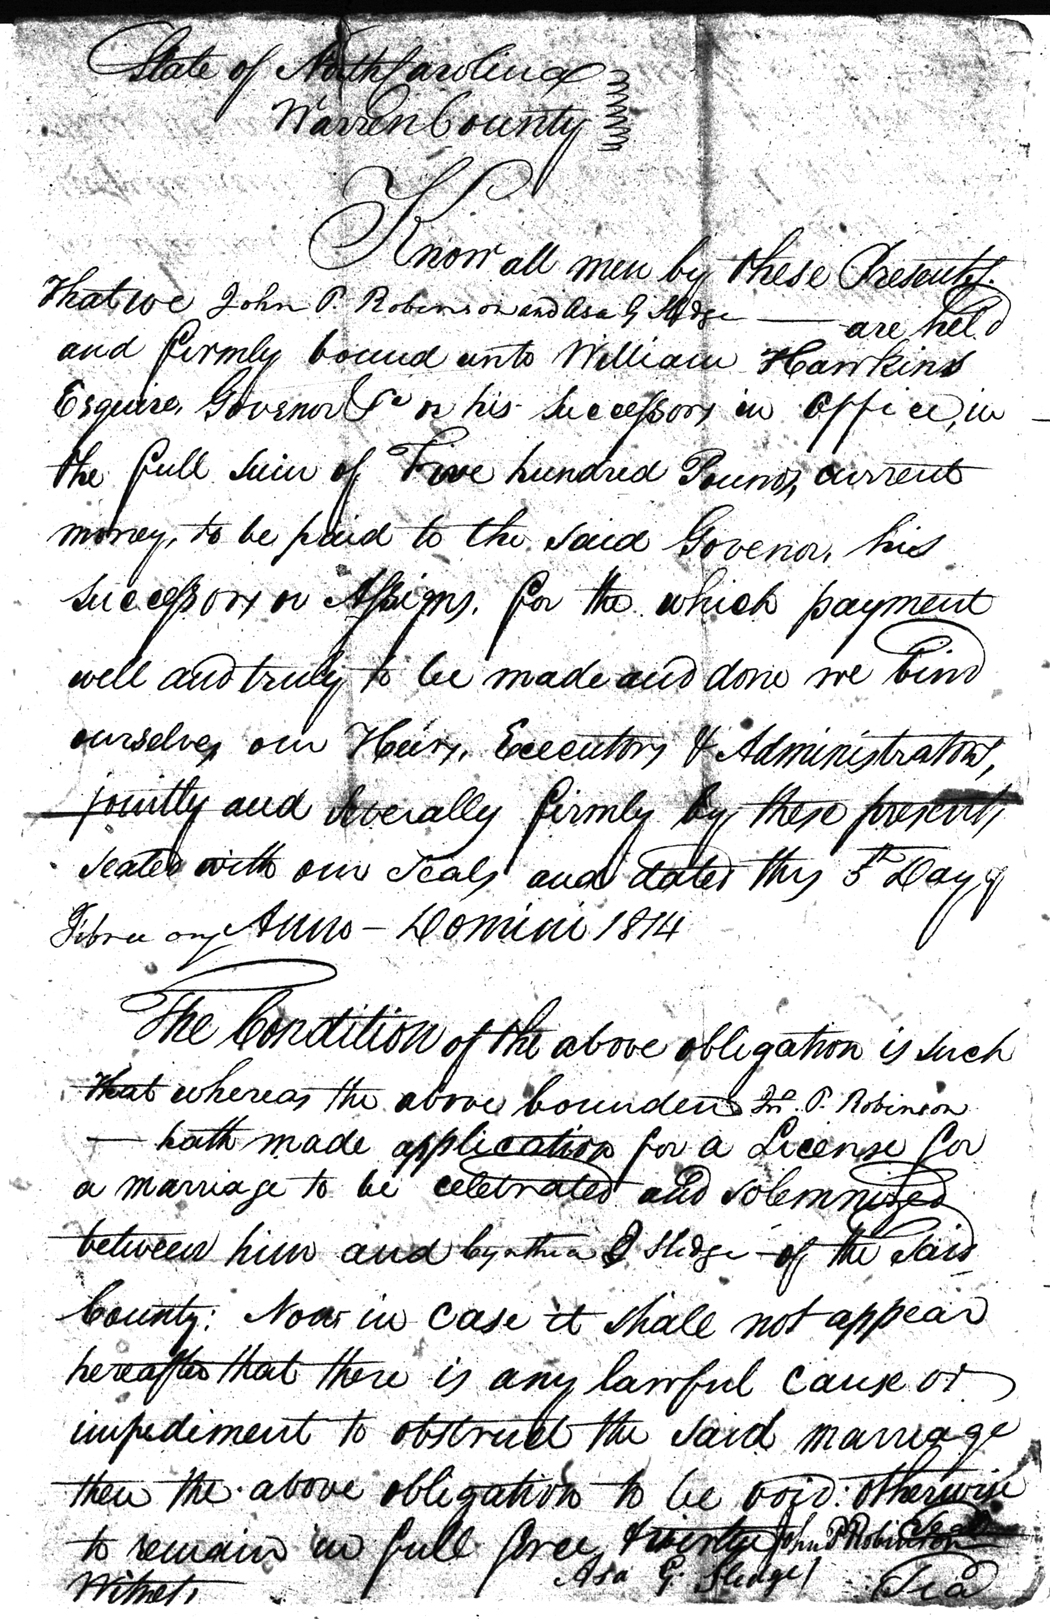 State of North Carolina
Warren County
Know all men by these Presents.
that we John P. Robinson and Asa G Sledge — are held
and firmly bound unto William Hawkins
Esquire, Govenor &c or his Successors in Office, in
the full sum of Five hundred Pounds, current
money, to be paid to the said Govenor, his
successors or Assigns, for the which payment
well and truly to be made and done we bind
ourselves our Heirs, Executors & Administrators,
jointly and severally firmly by these presents,
sealed with our seals and dated this 5th Day of
Anno - Domini 1814
The Condition of the above obligation is such
that whereas the above bounden Jn. P. Robinson
— hath made application for a License for
a marriage to be celebrated and solemnized
between him and Cynthia Sledge - of the said
County: Now in case it shall not appear
hereafter that there is any lawful cause or
impediment to obstruct the said marriage
then the above obligation to be void: otherwise
to remain in full force & John P Robinson
Asa G. Sledge
Witness